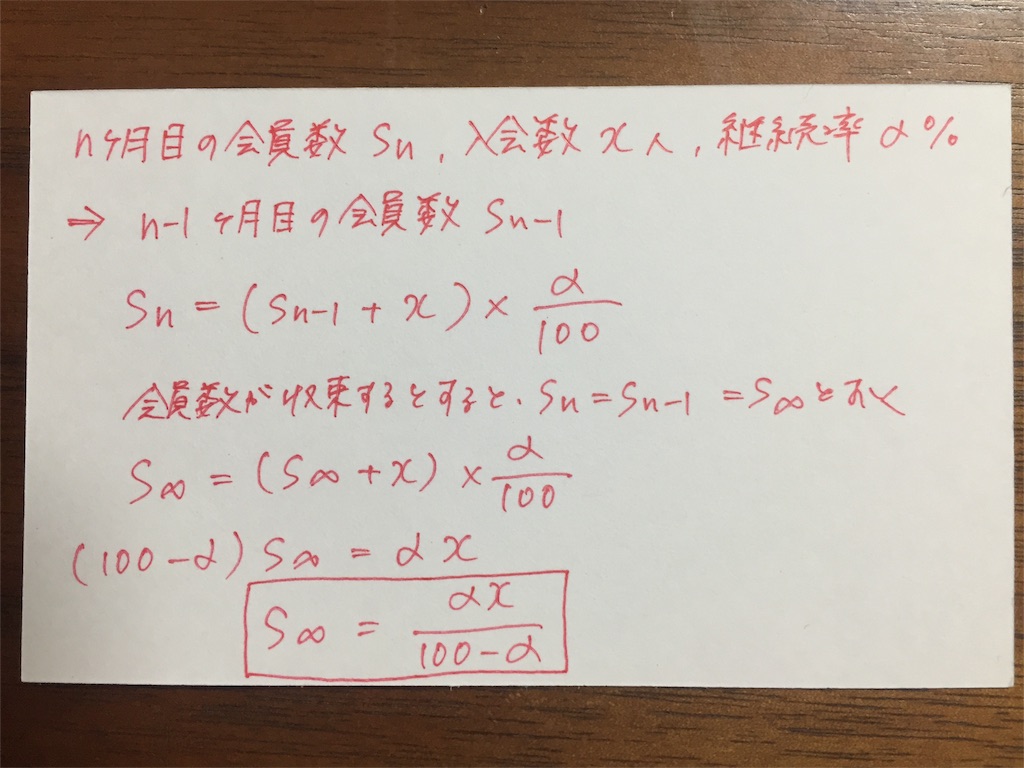 nヶ月目の会員数 Sn , 入会数 x人 , 継続率 α%
⇒ n-1ヶ月目の会員数 Sn-1
Sn = (Sn-1 + x) × α/100
会員数が収束するとすると、Sn = Sn-1 = S∞とおく
S∞ = (S∞ + x) × α/100
(100-α) S∞ = αx
S∞ = αx/100-α